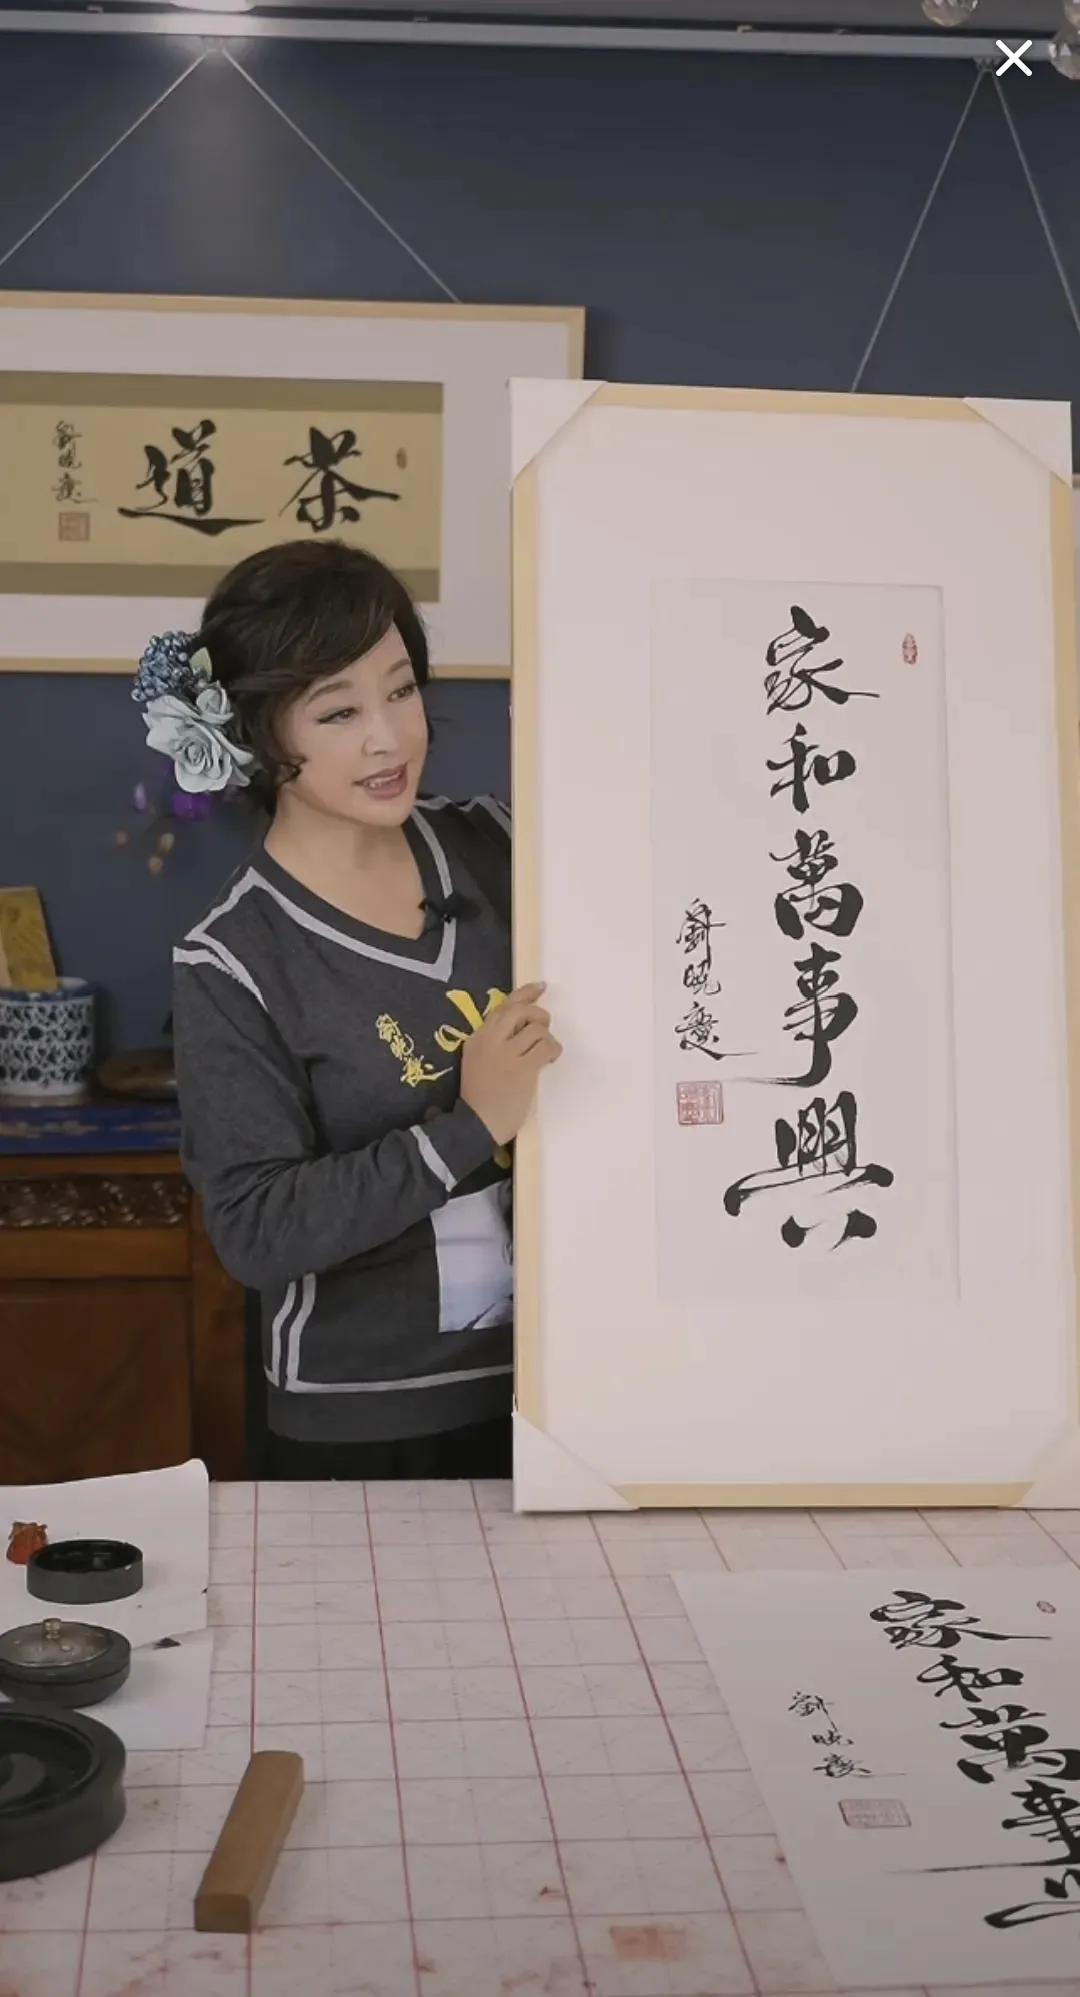 茶道
劉曉慶
家和萬事興
劉曉慶
劉曉慶
家和萬事
劉曉慶